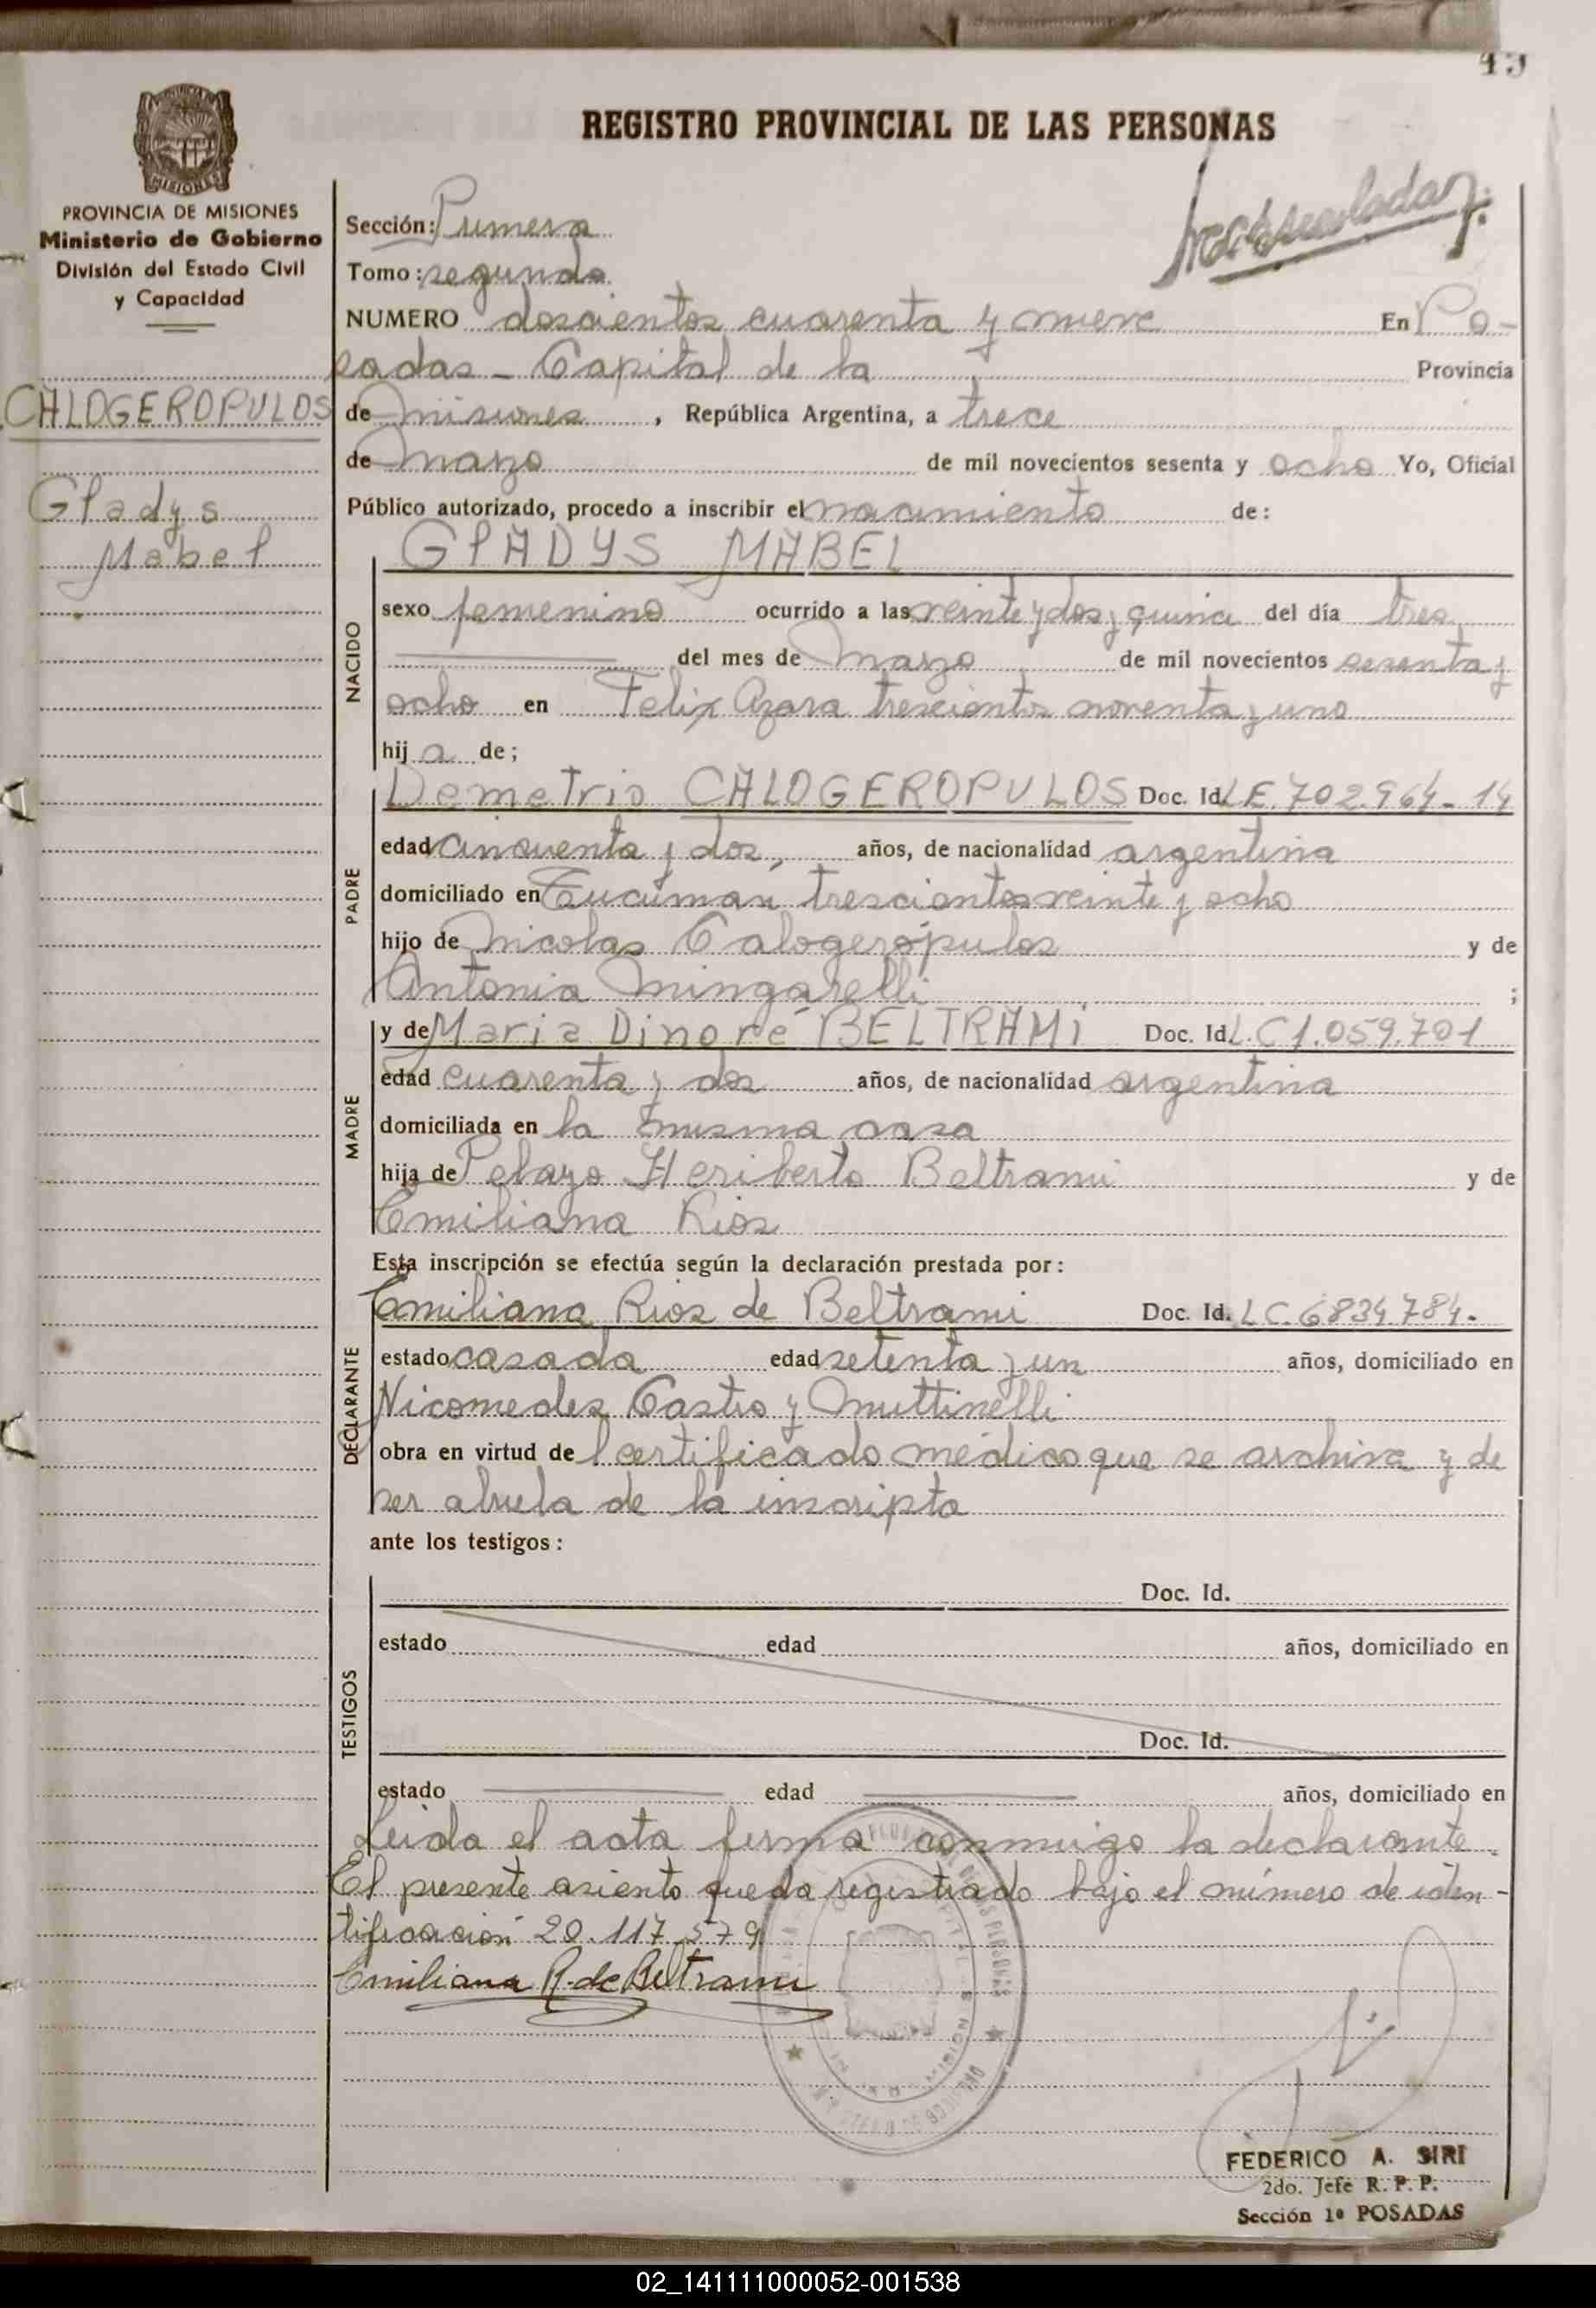 45
REGISTRO PROVINCIAL DE LAS PERSONAS
MISIONES
PROVINCIA DE MISIONES
Ministerio de Gobierno
División del Estado Civil
y Capacidad
CALOGEROPULOS
Gladys
Mabel
Sección: Primera
Tomo: segundo
NUMERO doscientos cuarenta y nueve En Po-
sadas - Capital de la Provincia
de Misiones, República Argentina, a trece
de Marzo de mil novecientos sesenta y ocho Yo, Oficial
Público autorizado, procedo a inscribir el nacimiento de:
GlADYS MABEL
NACIDO
sexo femenino ocurrido a las veinte y dos y quince del día tres
del mes de Marzo de mil novecientos sesenta y
ocho en Felix Azara trescientos noventa y uno
hij a de;
PADRE
Demetrio CALOGEROPULOS Doc. Id. L.E. 702.964 - 14
edad cincuenta y dos, años, de nacionalidad argentina
domiciliado en Tucumán trescientos veinte y ocho
hijo de Nicolas Calogerópulos y de
Antonia Mingarelli ;
MADRE
y de Maria Dinoré BELTRAMI Doc. Id. L.C 1.059.701
edad cuarenta y dos años, de nacionalidad argentina
domiciliada en la misma casa
hija de Pelayo Heriberto Beltrami y de
Emiliana Rios
Esta inscripción se efectúa según la declaración prestada por:
DECLARANTE
Emiliana Rios de Beltrami Doc. Id. L.C. 6834.784.
estado casada edad setenta y un años, domiciliado en
Nicomedes Castro y Muttinelli
obra en virtud de l certificado médico que se archiva y de
ser abuela de la inscripta
ante los testigos:
TESTIGOS
Doc. Id.
estado edad años, domiciliado en
Doc. Id.
estado edad años, domiciliado en
Leida el acta firma conmigo la declarante.
El presente asiento queda registrado bajo el número de iden-
tificación 20.117.579
Emiliana R. de Beltrami
FEDERICO A. SIRI
2do. Jefe R. P. P.
Sección 1ª POSADAS
02_141111000052-001538